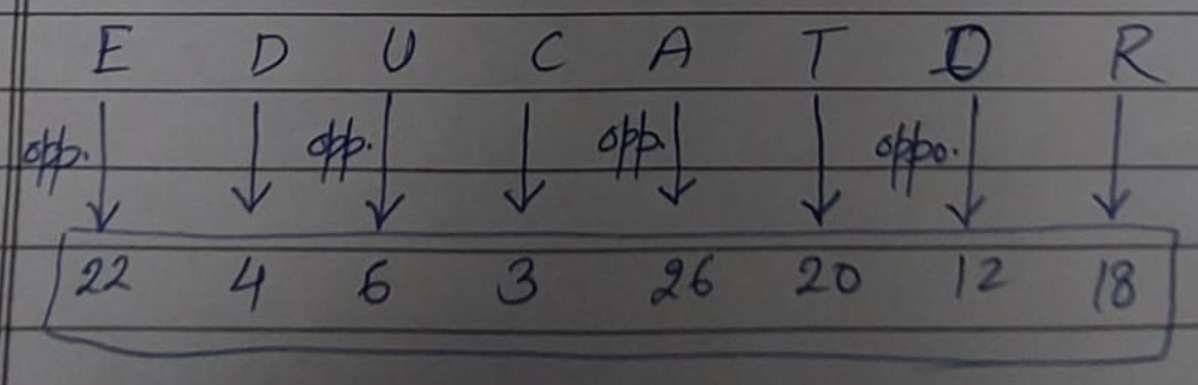 E D U C A T O R
opp. opp. opp. oppo.
22 4 6 3 26 20 12 18